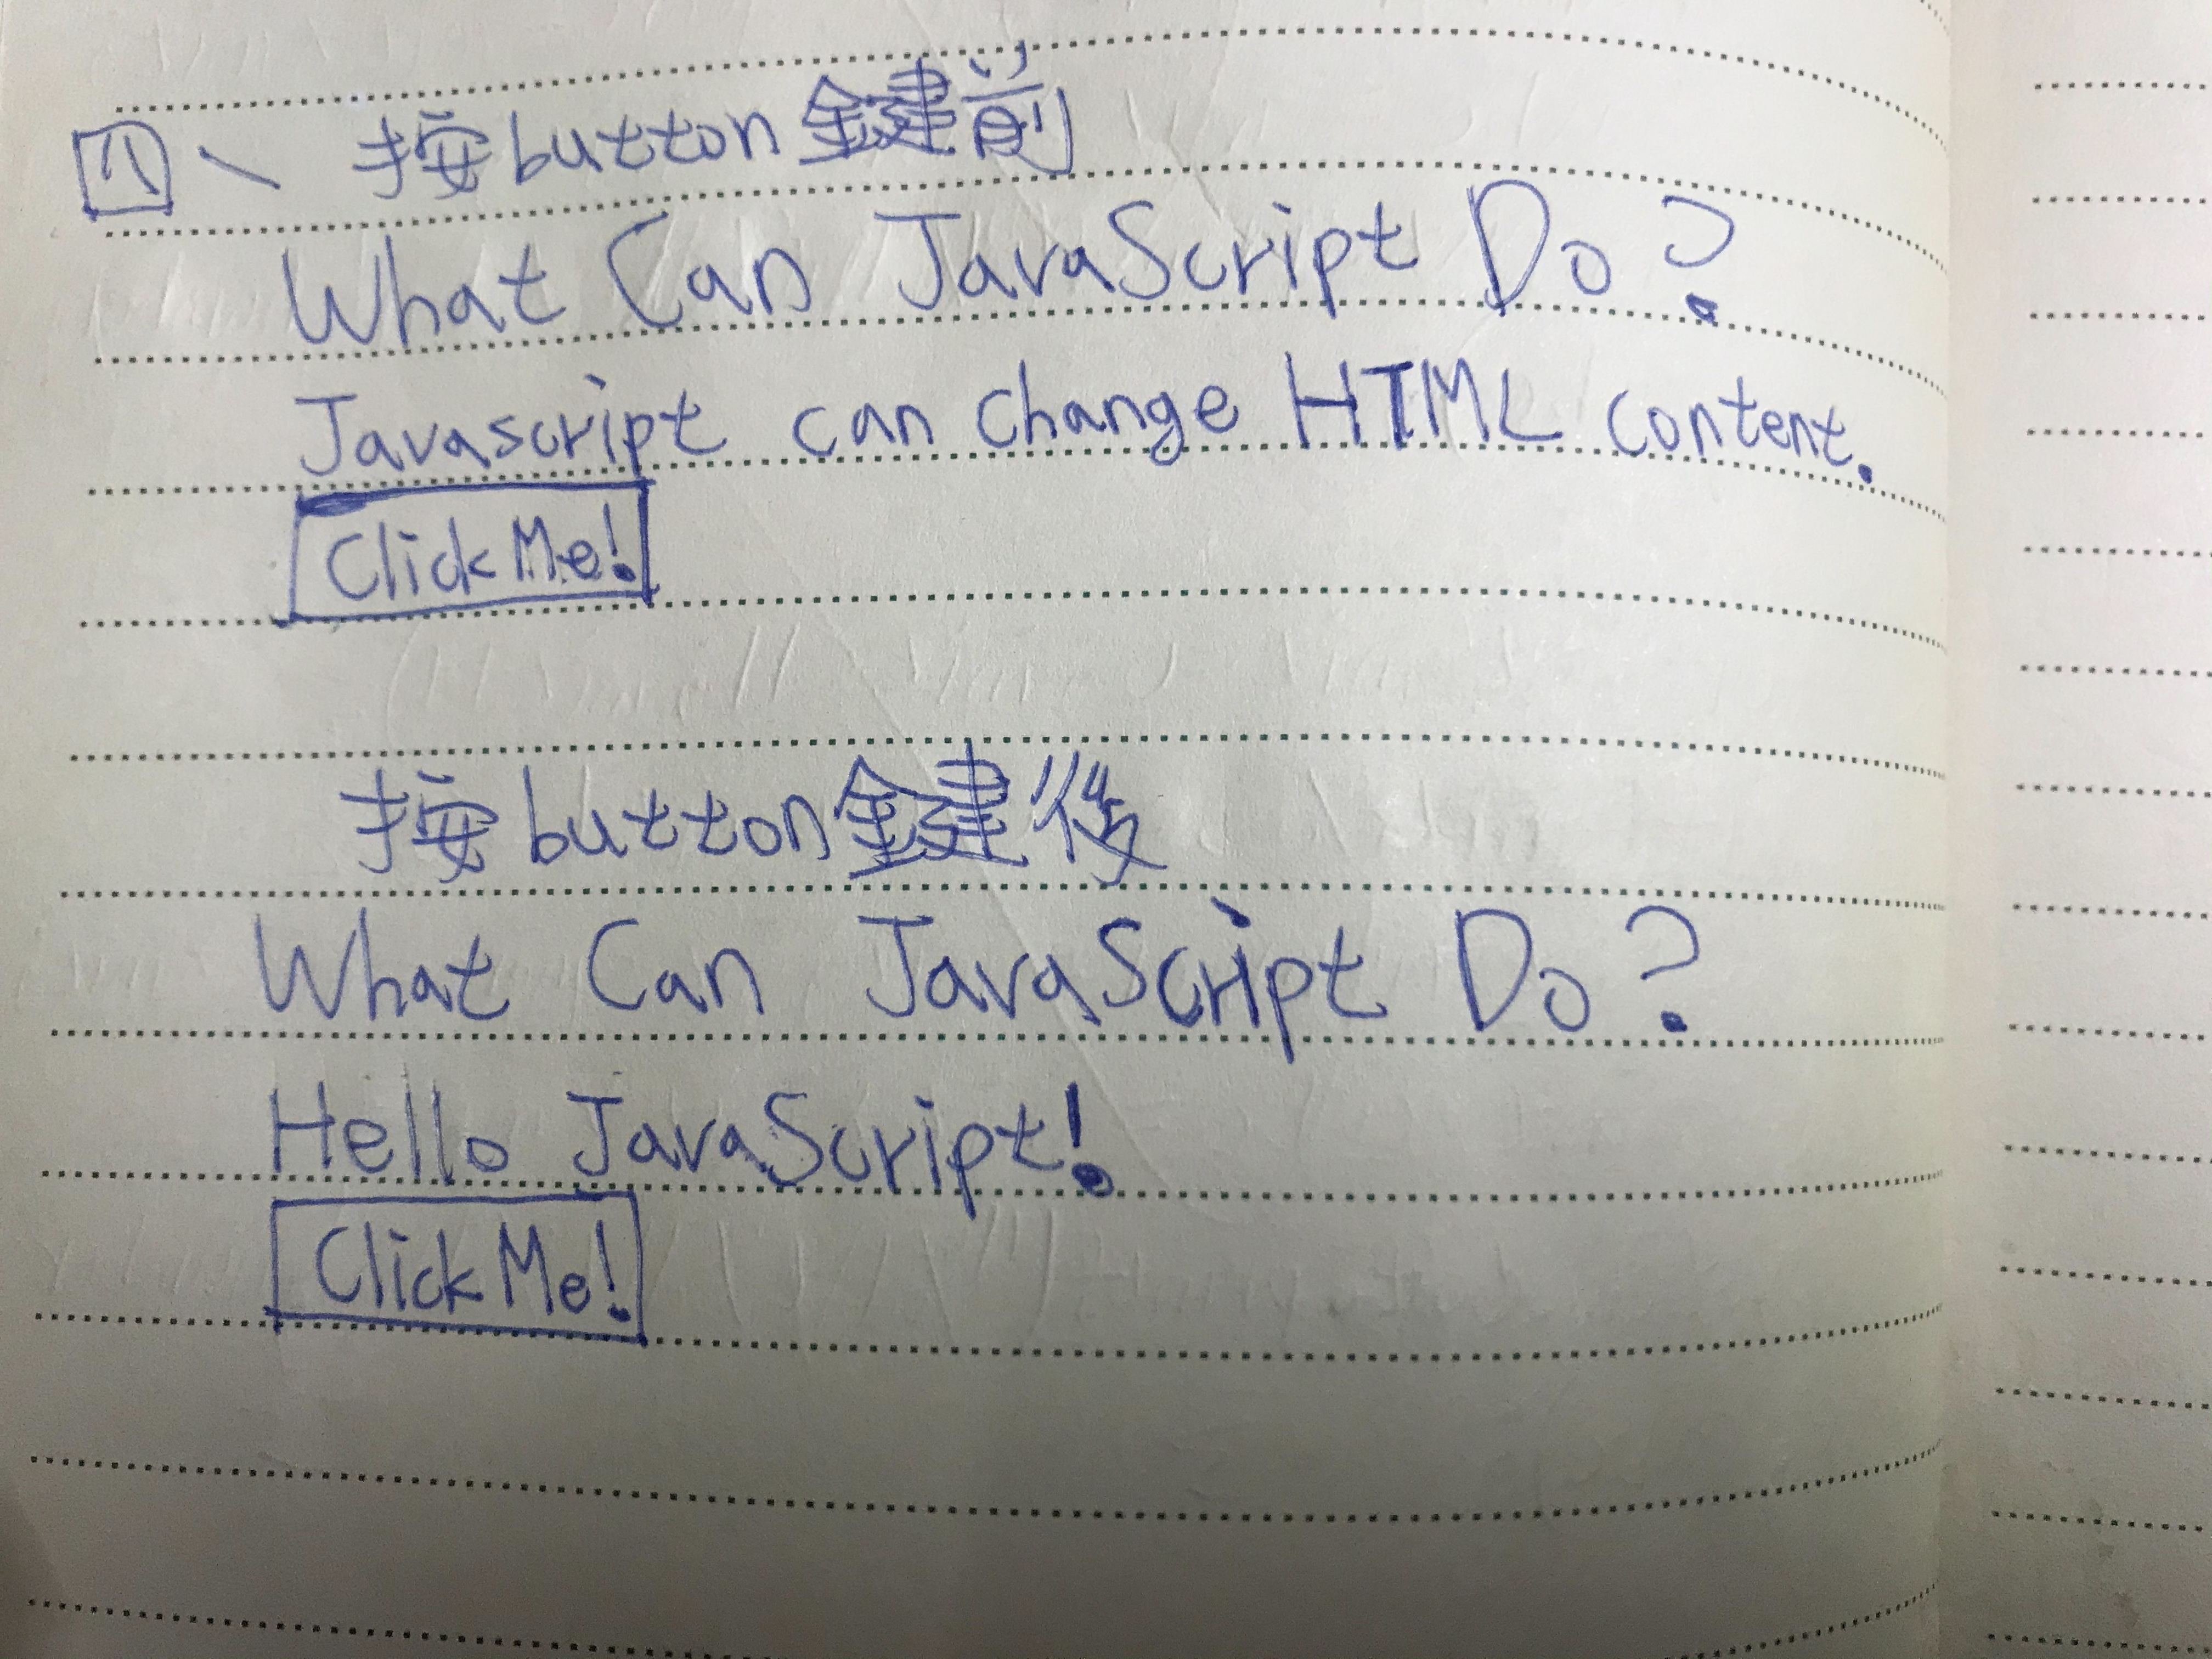 四、按button鍵前
What Can JavaScript Do?
Javascript can change HTML content.
Click Me!
按button鍵後
What Can JavaScript Do?
Hello JavaScript!
Click Me!